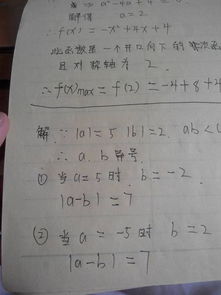 ⇒ a²-4a+4 = 0
解得 a=2
∴ f(x) = -x²+4x+4
此函数是一个开口向下的
且对称轴为 2
∴ f(x)max = f(2) = -4+8+4
解 ∵ |a|=5 |b|=2, ab<0
∴ a、b异号
① 当a=5时 b=-2
|a-b|=7
(2) 当a=-5时 b=2
|a-b|=7